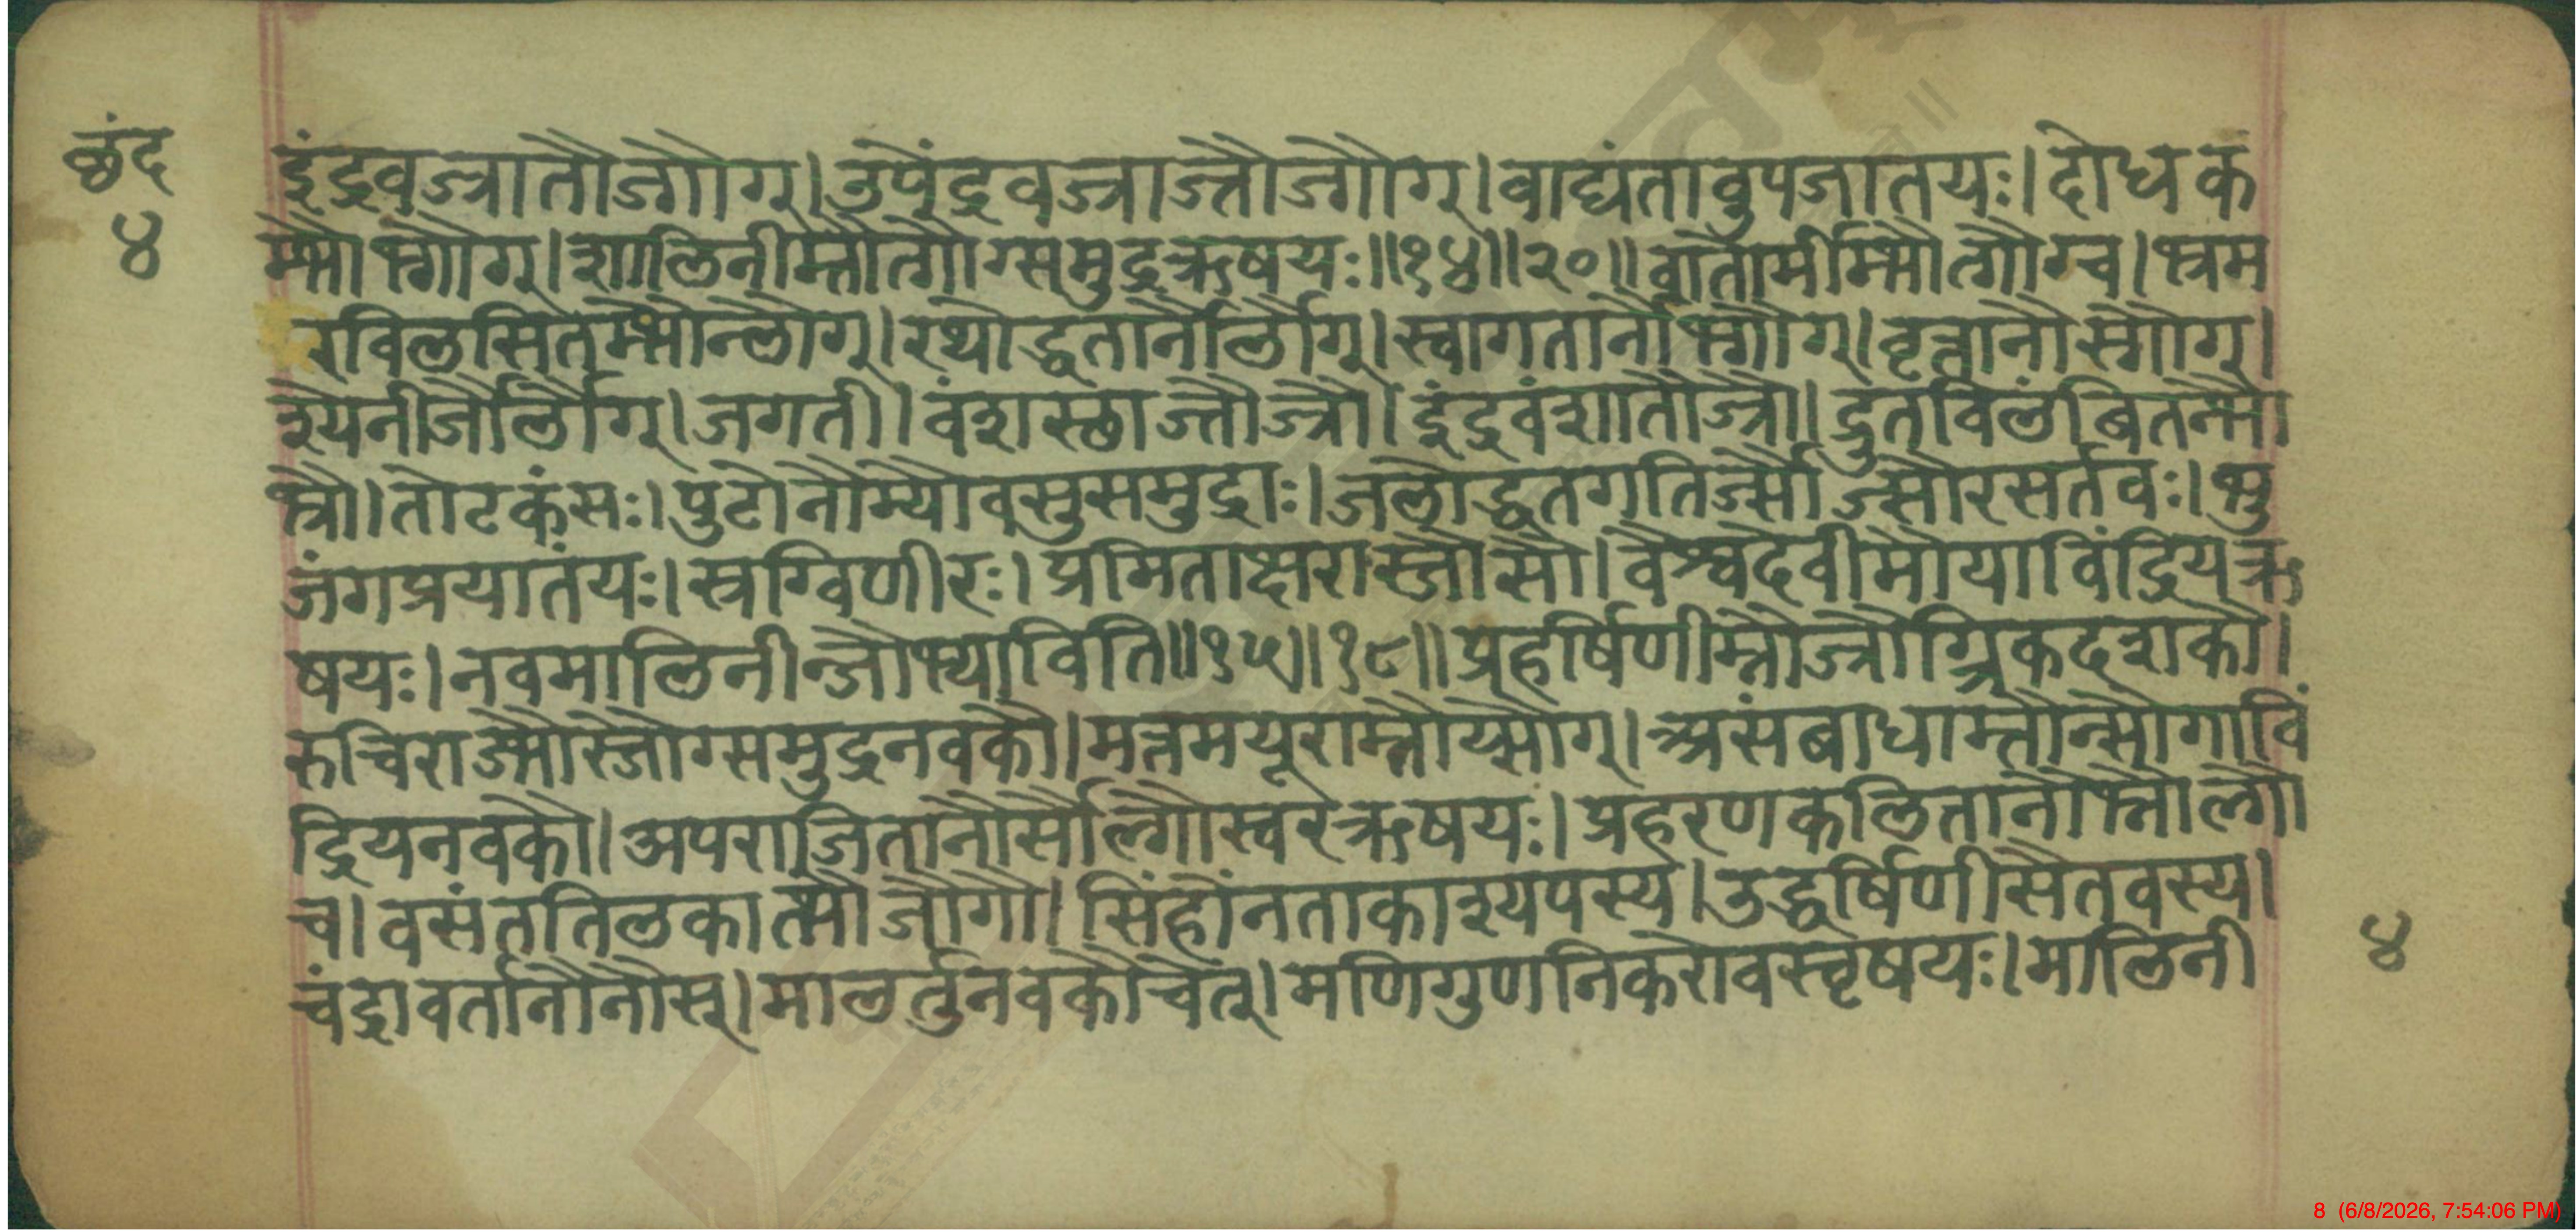 छंद
४
इंद्रवज्रातौजगौग्।उपेंद्रवज्राज्तौज्गौग्।वाद्यंतावुपजातयः।दोधक
म्भौभ्गौग्।शालिनीम्तौत्गौग्समुद्रऋषयः॥१४॥२०॥वातोर्मीम्भौत्गौग्च।भ्रम
रविलसितम्भौन्लौग्।रथोद्धतार्नौर्लौग्।स्वागतार्नौभ्गौग्।वृत्तानौस्गौग्।
श्येनीर्जौर्लौग्।जगती।वंशस्छाज्तौज्रौ।इंद्रवंशातौज्रौ।द्रुतविलंबितन्भौ
भ्रौ।तोटकंसः।पुटोनौम्यौवसुसमुद्राः।जलोद्धतगतिर्ज्सौज्सौरसर्तवः।भु
जंगप्रयातंयः।स्रग्विणीरः।प्रमिताक्षरास्जौसौ।वैश्वदेवीमौयाविंद्रियऋ
षयः।नवमालिनीन्जौभ्याविति॥१५॥१८॥प्रहर्षिणीम्नौज्रौग्त्रिकदशकौ।
रुचिराज्भौस्जौग्समुद्रनवकौ।मत्तमयूराम्तौय्सौग्।असंबाधाम्तौन्सौगाविं
द्रियनवकौ।अपराजितानौर्सौल्गौस्वरऋषयः।प्रहरणकलितानौभ्नौल्गौ
च।वसंततिलकात्भौजौगौ।सिंहोंनताकाश्यपस्य।उद्धर्षिणीसैतवस्य।
चंद्रावर्तानौनौस्।मालर्तुनवकौचेत्।मणिगुणनिकरोवस्वृषयः।मालिनी
४
8 (6/8/2026, 7:54:06 PM)